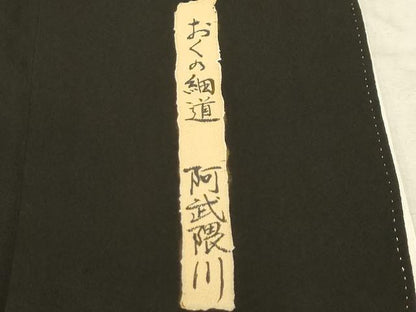 おくの細道 阿武隈川